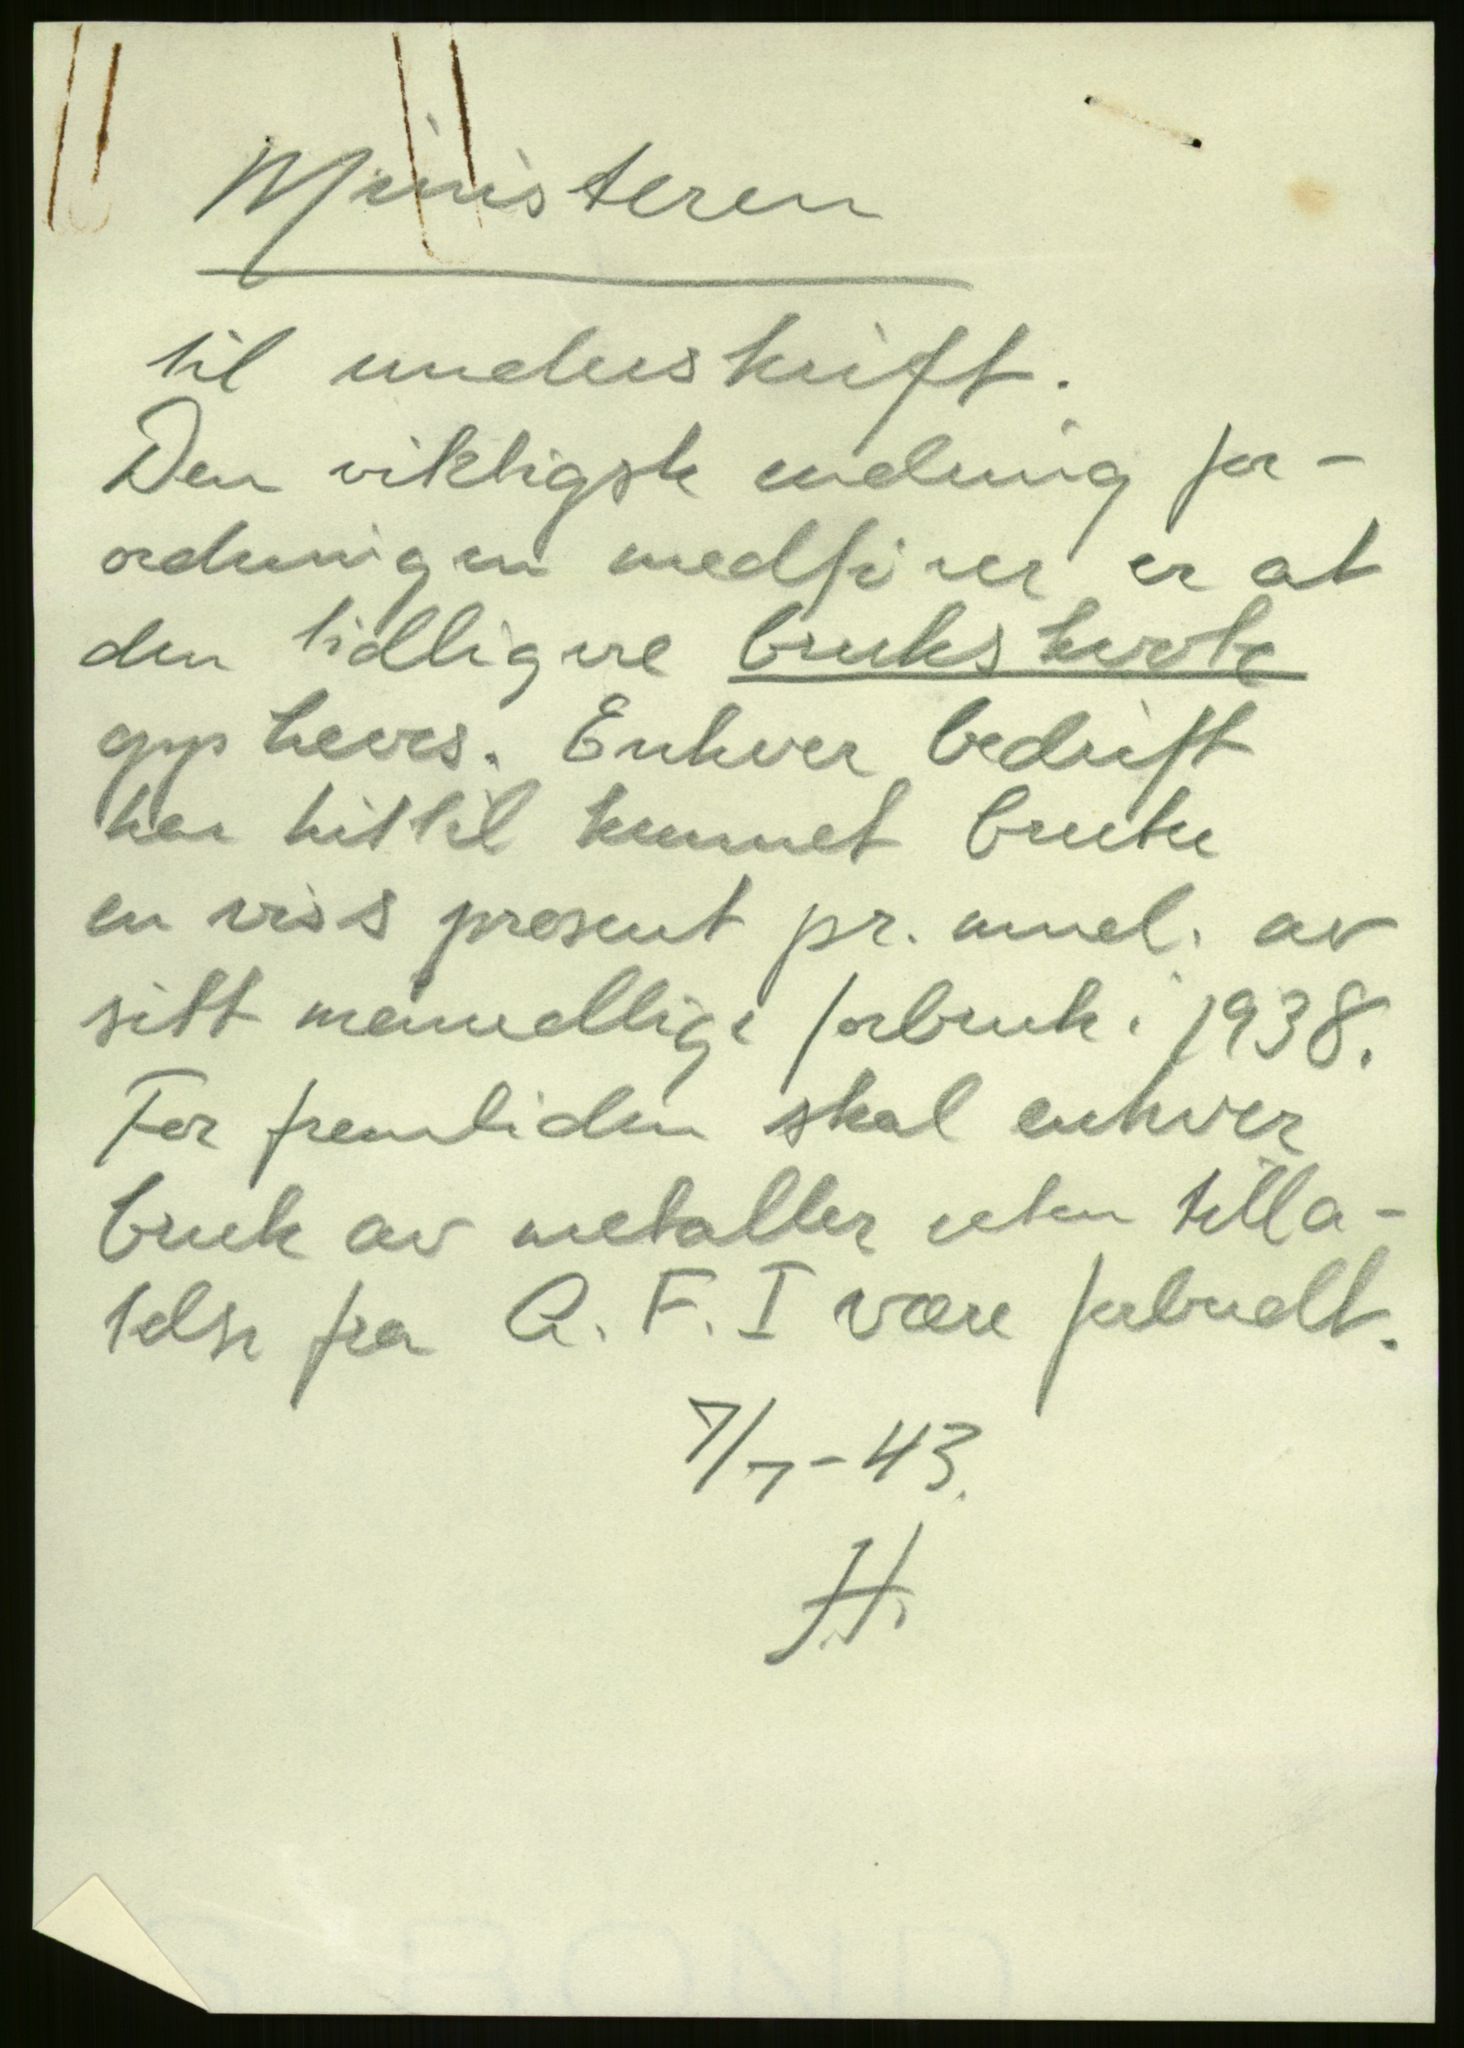 Ministeren
til underskrift.
Den viktigste endring for-
ordningen medfører er at
den tidligere brukskvote
oppheves. Enhver bedrift
har hittil kunnet bruke
en viss prosent pr. mnd. av
sitt månedlige forbruk i 1938.
For fremtiden skal enhver
bruk av metaller uten tilla-
telse fra A. F. I være forbudt.
7/7-43.
H.